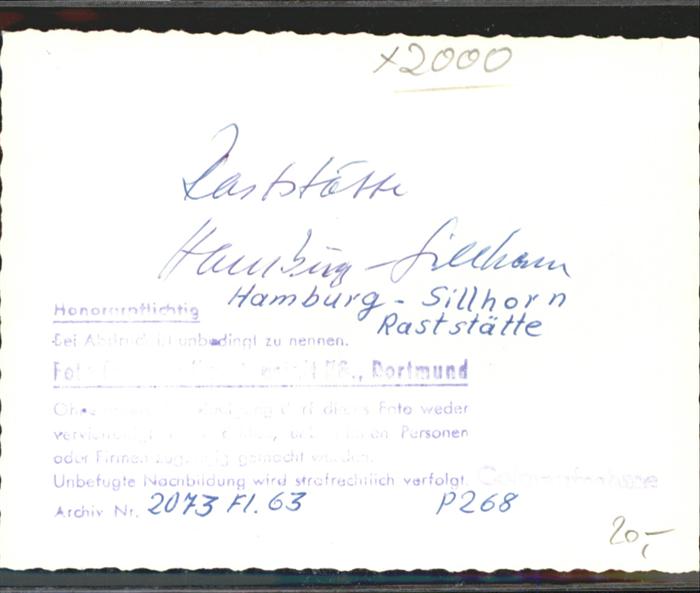 x2000
Raststätte
Hamburg - Sillhorn
Hamburg - Sillhorn
Raststätte
Honorarpflichtig
Bei Abdruck ist unbedingt zu nennen.
Foto Dortmund
Ohne darf dieses Foto weder
Personen
oder Firmen zugängig gemacht werden.
Unbefugte Nachbildung wird strafrechtlich verfolgt.
Archiv Nr. 2073 Fl. 63 P268
20,-